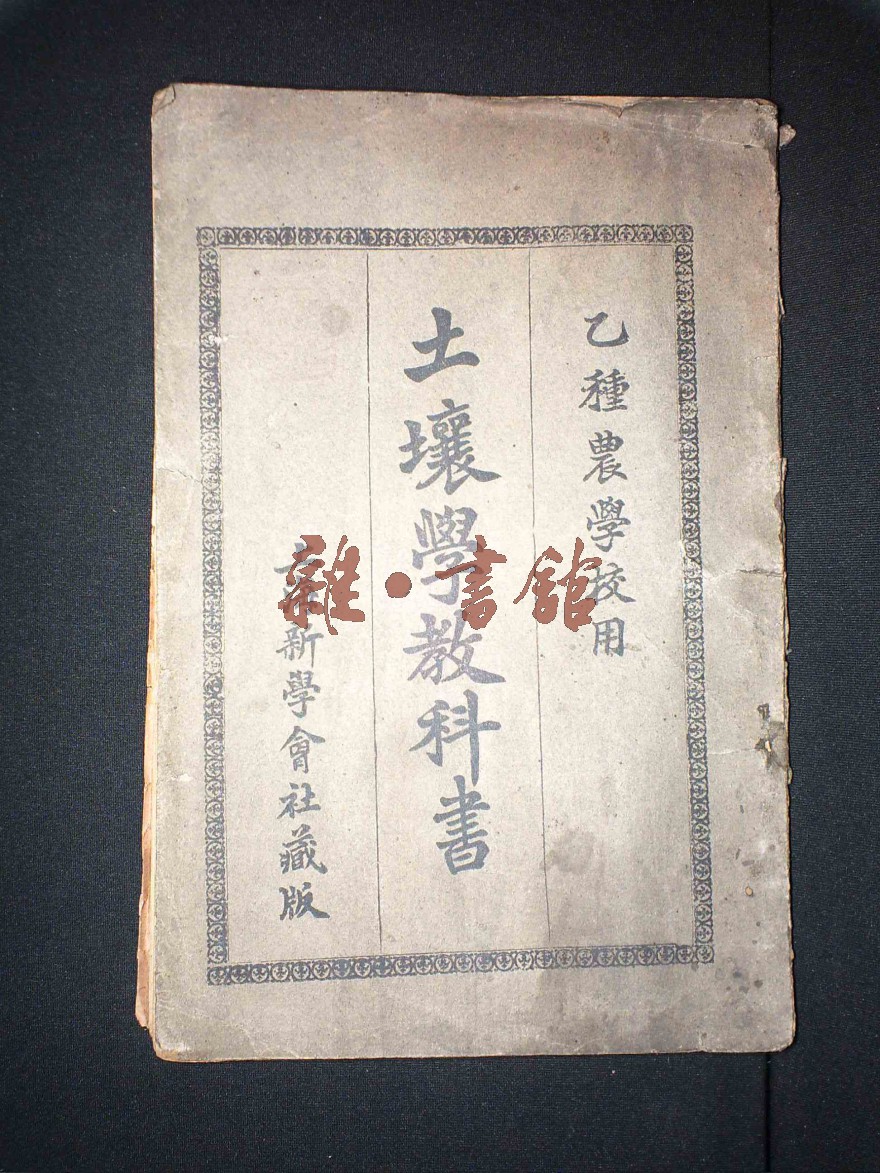 乙種農學校用
土壤學教科書
新學會社藏版
雜·書館